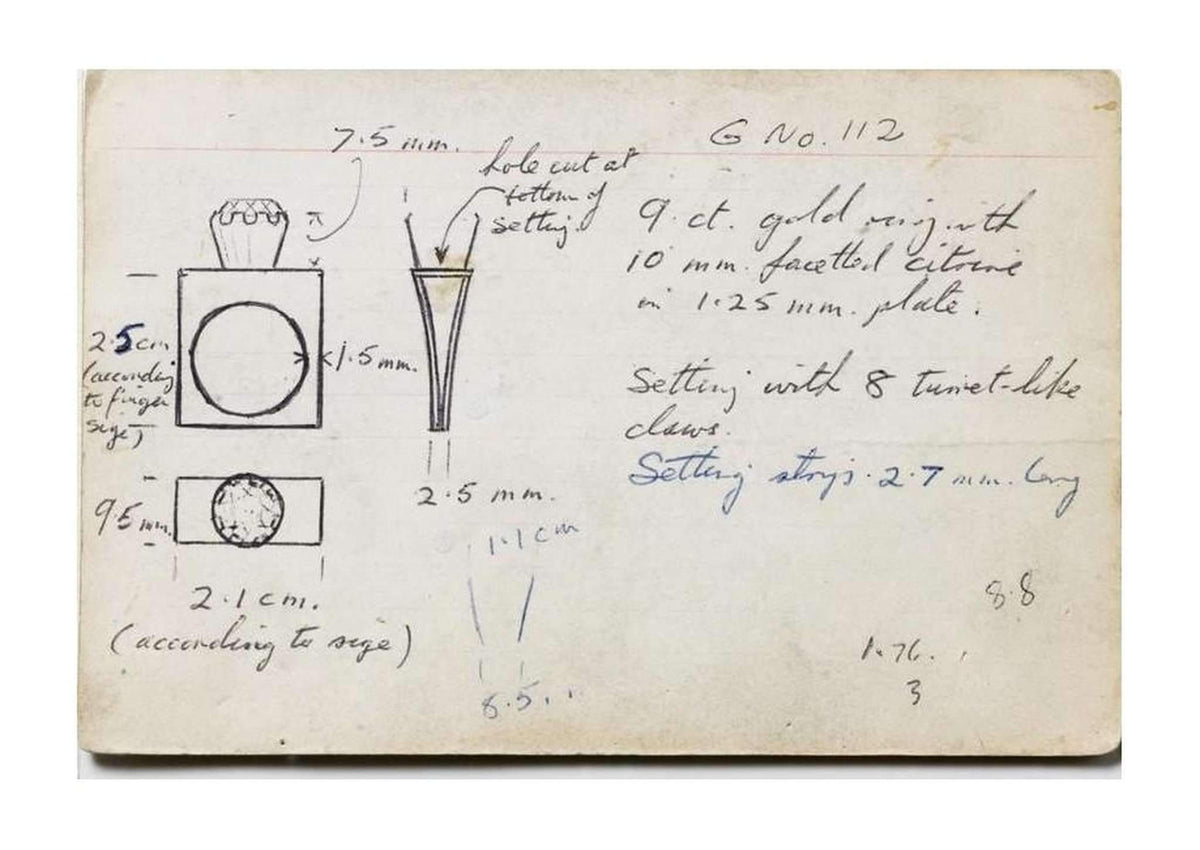 G No. 112
7.5 mm.
hole cut at
bottom of
setting.
9 ct. gold ring with
10 mm. facetted citrine
in 1.25 mm. plate.
2.5 cm
(according
to finger
size)
1.5 mm.
Setting with 8 turret-like
claws.
Setting strips. 2.7 mm. long
9.5 mm.
2.5 mm.
1.1 cm
2.1 cm.
(according to size)
8.5
8.8
1.76.
3